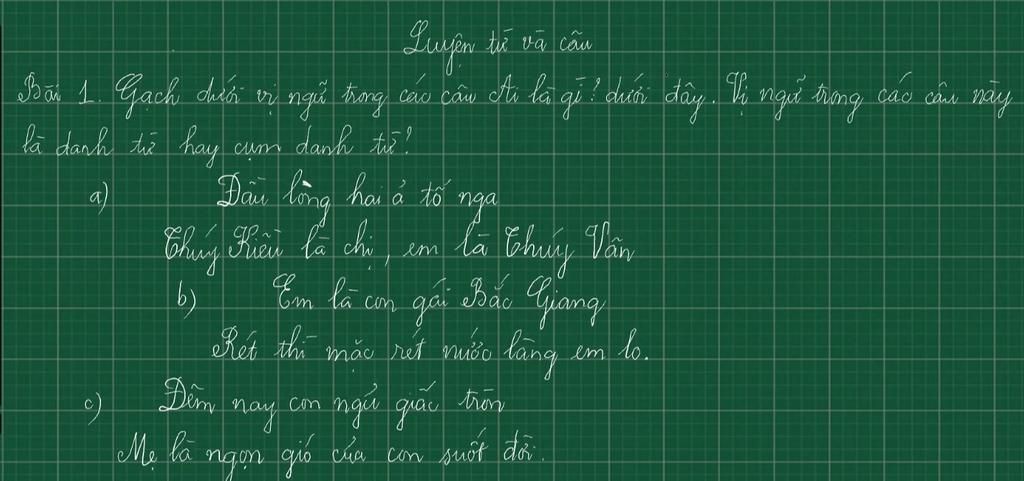 Luyện từ và câu
Bài 1. Gạch dưới vị ngữ trong các câu Ai là gì? dưới đây. Vị ngữ trong các câu này
là danh từ hay cụm danh từ?
a) Đầu lòng hai ả tố nga
Thúy Kiều là chị, em là Thúy Vân
b) Em là con gái Bắc Giang
Rét thì mặc rét nước làng em lo.
c) Đêm nay con ngủ giấc tròn
Mẹ là ngọn gió của con suốt đời.